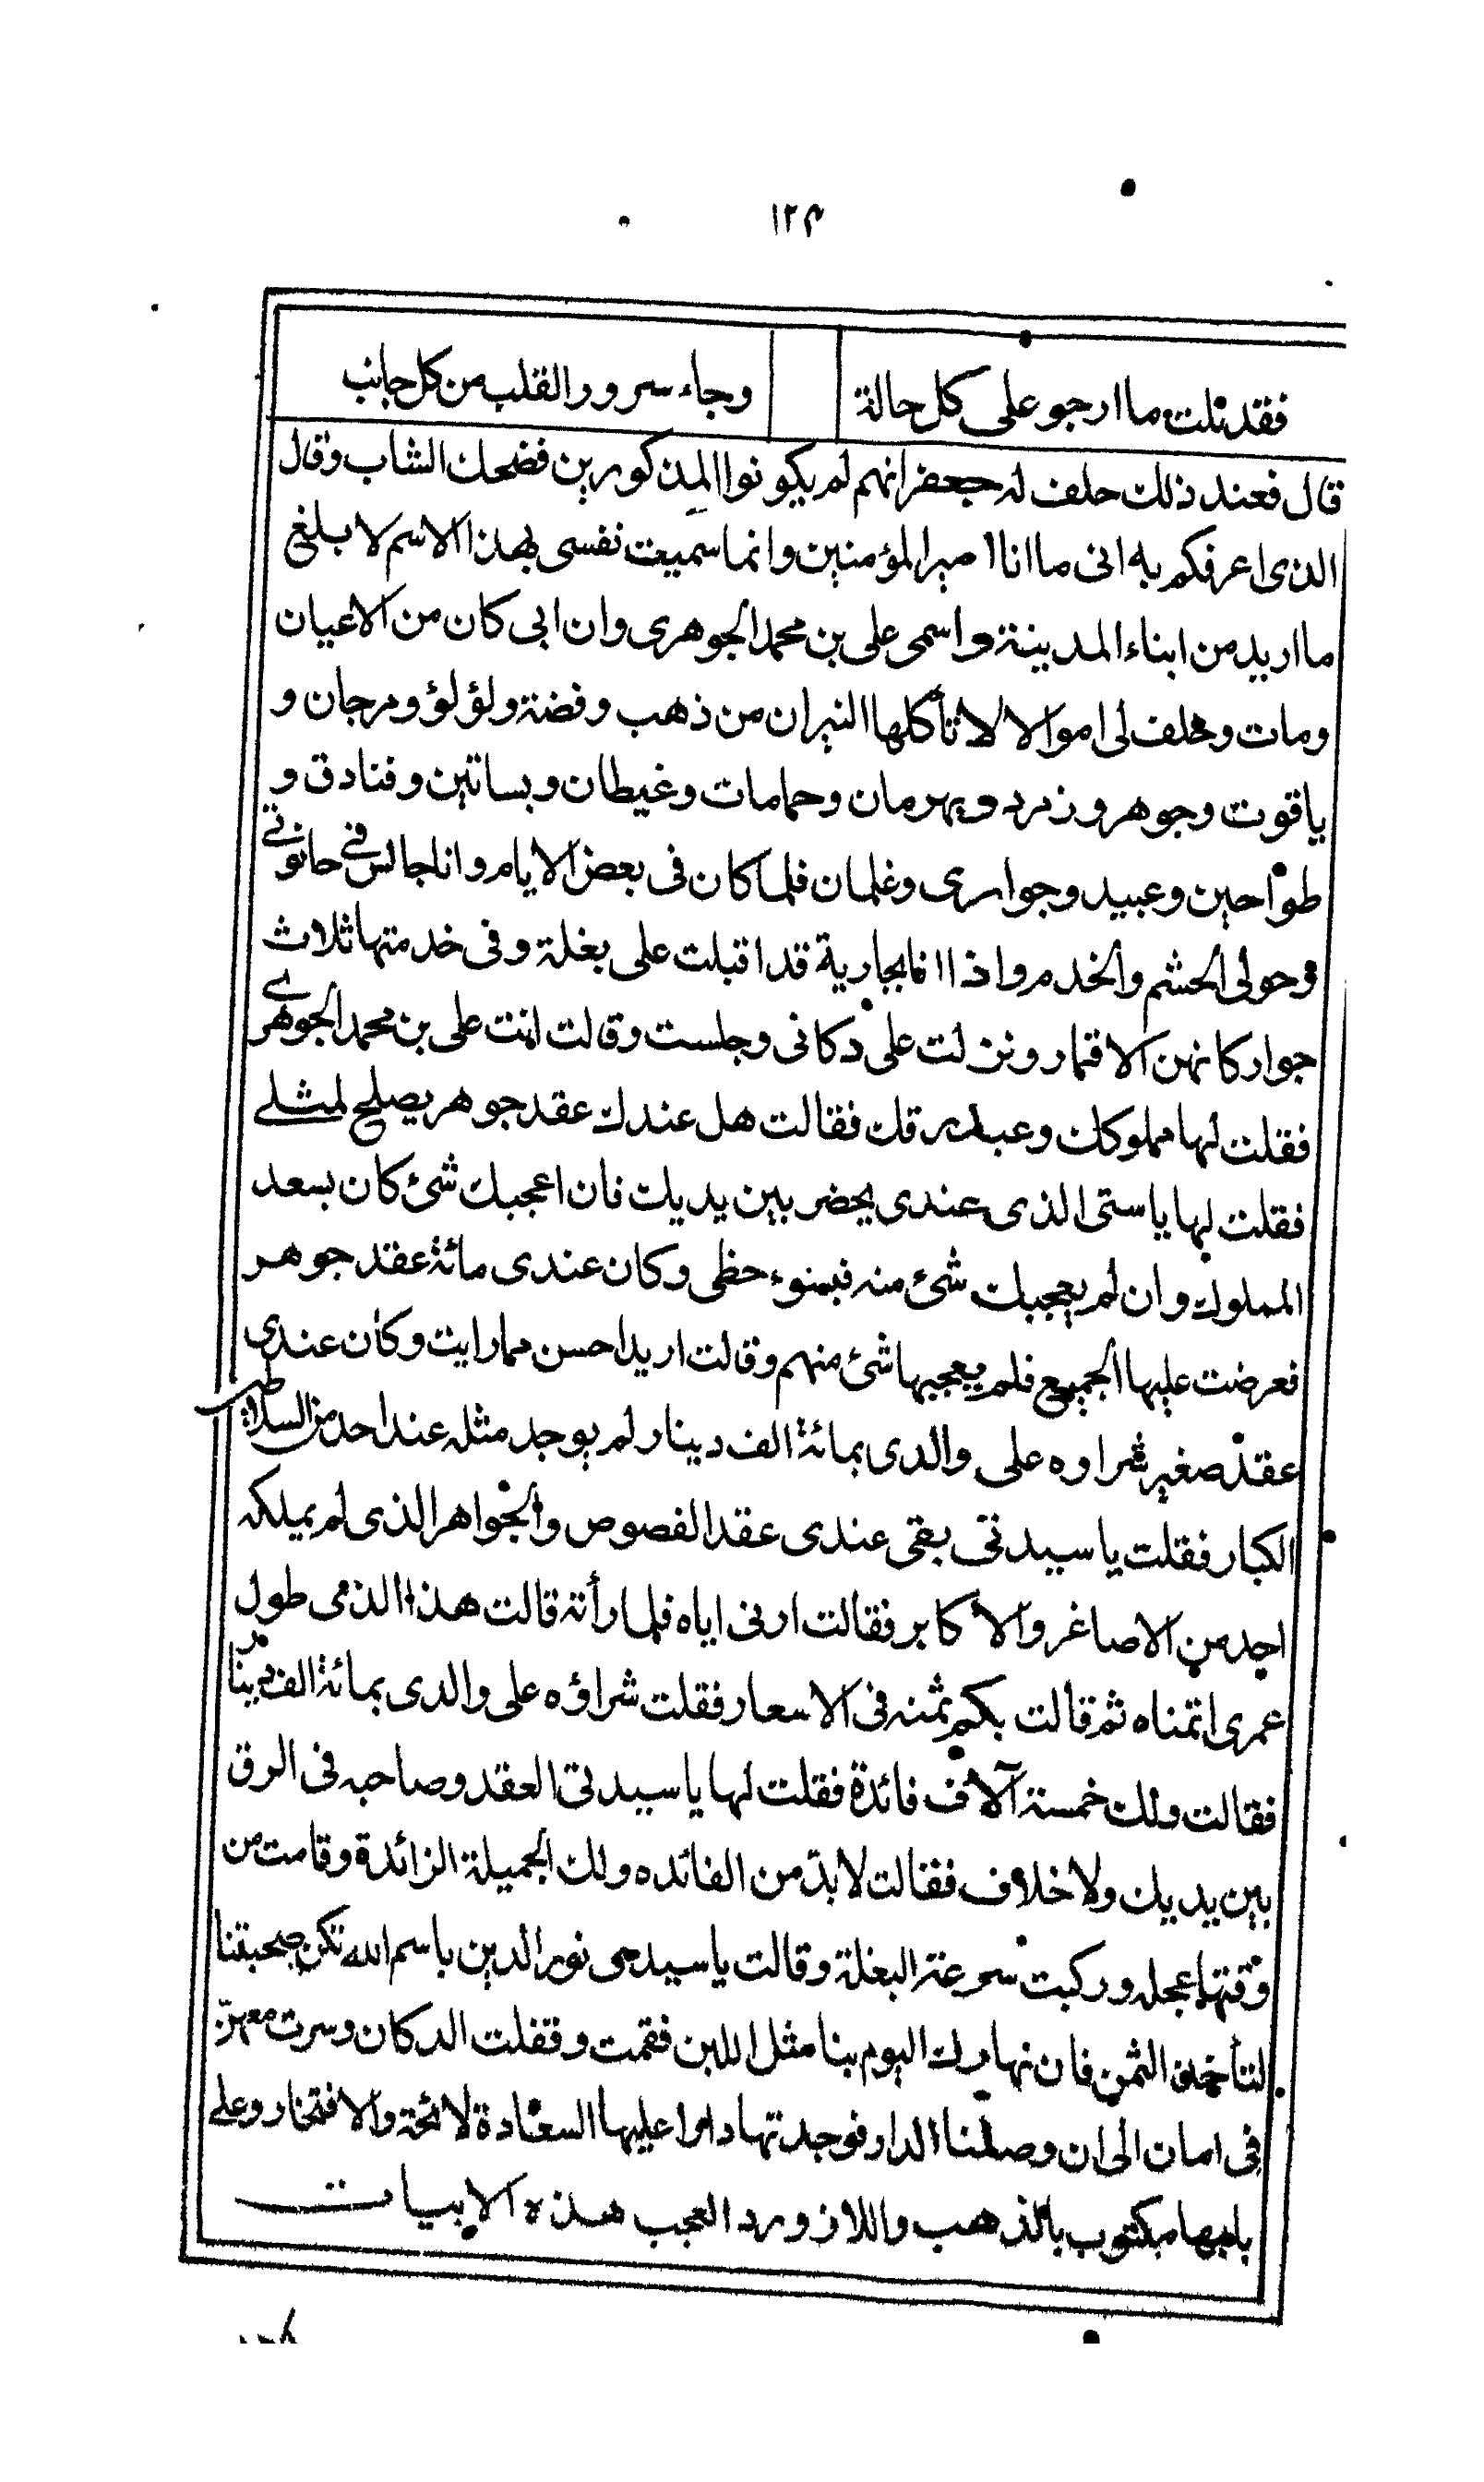 ١٢٤
فقد نلت ما ارجو على كل حالة وجاء سرور القلب من كل جانب
قال فعند ذلك حلف له جعفر انهم لم يكونوا المذكورين فضحك الشاب وقال
الذي اعرفكم به انى ما انا امير المؤمنين وانما سميت نفسى بهذا الاسم لا بلغ
ما اريد من ابناء المدينة واسمى على بن محمد الجوهرى وان ابى كان من الاعيان
ومات وخلف لى اموالا لا تأكلها النيران من ذهب وفضة ولؤلؤ ومرجان و
ياقوت وجوهر وزمرد وبهرمان وحمامات وغيطان وبساتين وفنادق و
طواحين وعبيد وجوارى وغلمان فلما كان فى بعض الايام وانا جالس في حانوتي
وحولى الحشم والخدم واذا انا بجارية قد اقبلت على بغلة وفى خدمتها ثلاث
جوار كانهن الاقمار ونزلت على دكانى وجلست وقالت انت على بن محمد الجوهرے
فقلت لها مملوكك وعبد رقك فقالت هل عندك عقد جوهر يصلح لمثلے
فقلت لها يا ستى الذى عندى يحضر بين يديك فان اعجبك شئ كان بسعد
المملوك وان لم يعجبك شئ منه فبسوء حظى وكان عندى مائة عقد جوهر
فعرضت عليها الجميع فلم يعجبها شئ منهم وقالت اريد احسن مما رايت وكان عندى
عقد صغير شراوه على والدى بمائة الف دينار لم يوجد مثله عند احد من السلاطين
الكبار فقلت يا سيدتى بقى عندى عقد الفصوص والجواهر الذى لم يملكه
احد من الاصاغر والاكابر فقالت ارنى اياه فلما رأته قالت هذا الذى طول
عمرى اتمناه ثم قالت بكم ثمنه فى الاسعار فقلت شراؤه على والدى بمائة الف دينار
فقالت ولك خمسة آلاف فائدة فقلت لها يا سيدتى العقد وصاحبه فى الرق
بين يديك ولا خلاف فقالت لا بدّ من الفائده ولك الجميلة الزائدة وقامت من
وقتها عجله وركبت سرعة البغلة وقالت يا سيدى نور الدين باسم الله تكن صحبتنا
لتأخذ الثمن فان نهارك اليوم بنا مثل اللبن فقمت وقفلت الدكان وسرت معهنّ
فى امان الى ان وصلنا الدار فوجدتها دارا عليها السعادة لائحة والافتخار وعلى
بابها مكتوب بالذهب واللازورد العجب هذه الابيات